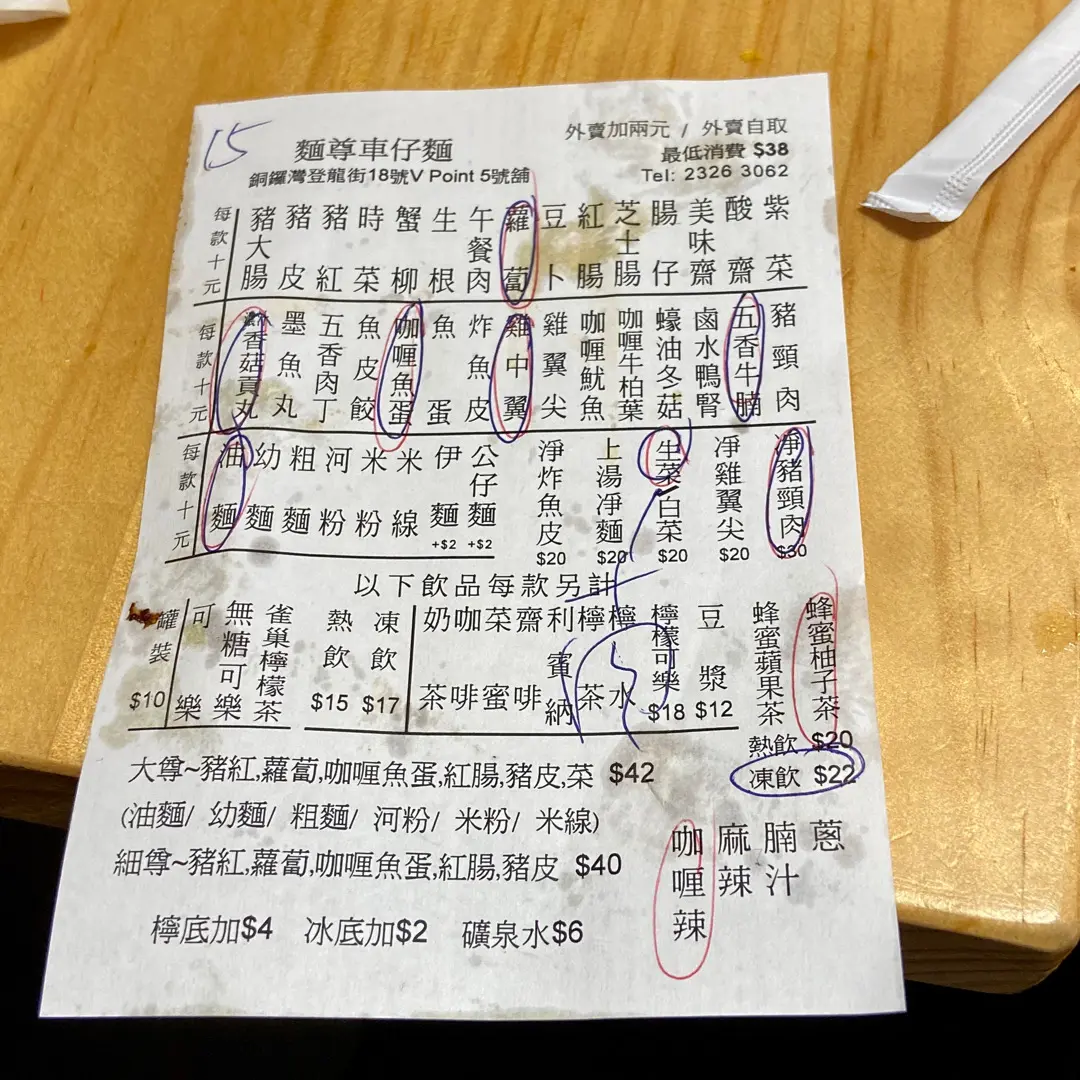 15
麵尊車仔麵
銅鑼灣登龍街18號V Point 5號舖
外賣加兩元 / 外賣自取
最低消費 $38
Tel: 2326 3062
每款十元
豬大腸
豬皮
豬紅
時菜
蟹柳
生根
午餐肉
蘿蔔
豆卜
紅腸
芝士腸
腸仔
美味齋
酸齋
紫菜
每款十元
香菇貢丸
墨魚丸
五香肉丁
魚皮餃
咖喱魚蛋
魚蛋
炸魚皮
雞中翼
雞翼尖
咖喱魷魚
咖喱牛柏葉
蠔油冬菇
鹵水鴨腎
五香牛腩
豬頸肉
每款十元
油麵
幼麵
粗麵
河粉
米粉
米線
伊麵 +$2
公仔麵 +$2
淨炸魚皮 $20
上湯淨麵 $20
生菜白菜 $20
淨雞翼尖 $20
淨豬頸肉 $30
以下飲品每款另計
罐裝 $10
可樂
無糖可樂
雀巢檸檬茶
熱飲 $15
凍飲 $17
奶茶
咖啡
菜蜜
齋啡
利賓納
檸茶
檸水
檸檬可樂 $18
豆漿 $12
蜂蜜蘋果茶
蜂蜜柚子茶
熱飲 $20
凍飲 $22
大尊~豬紅,蘿蔔,咖喱魚蛋,紅腸,豬皮,菜 $42
(油麵/ 幼麵/ 粗麵/ 河粉/ 米粉/ 米線)
細尊~豬紅,蘿蔔,咖喱魚蛋,紅腸,豬皮 $40
咖喱辣
麻辣
腩汁
蔥
檸底加$4 冰底加$2 礦泉水$6